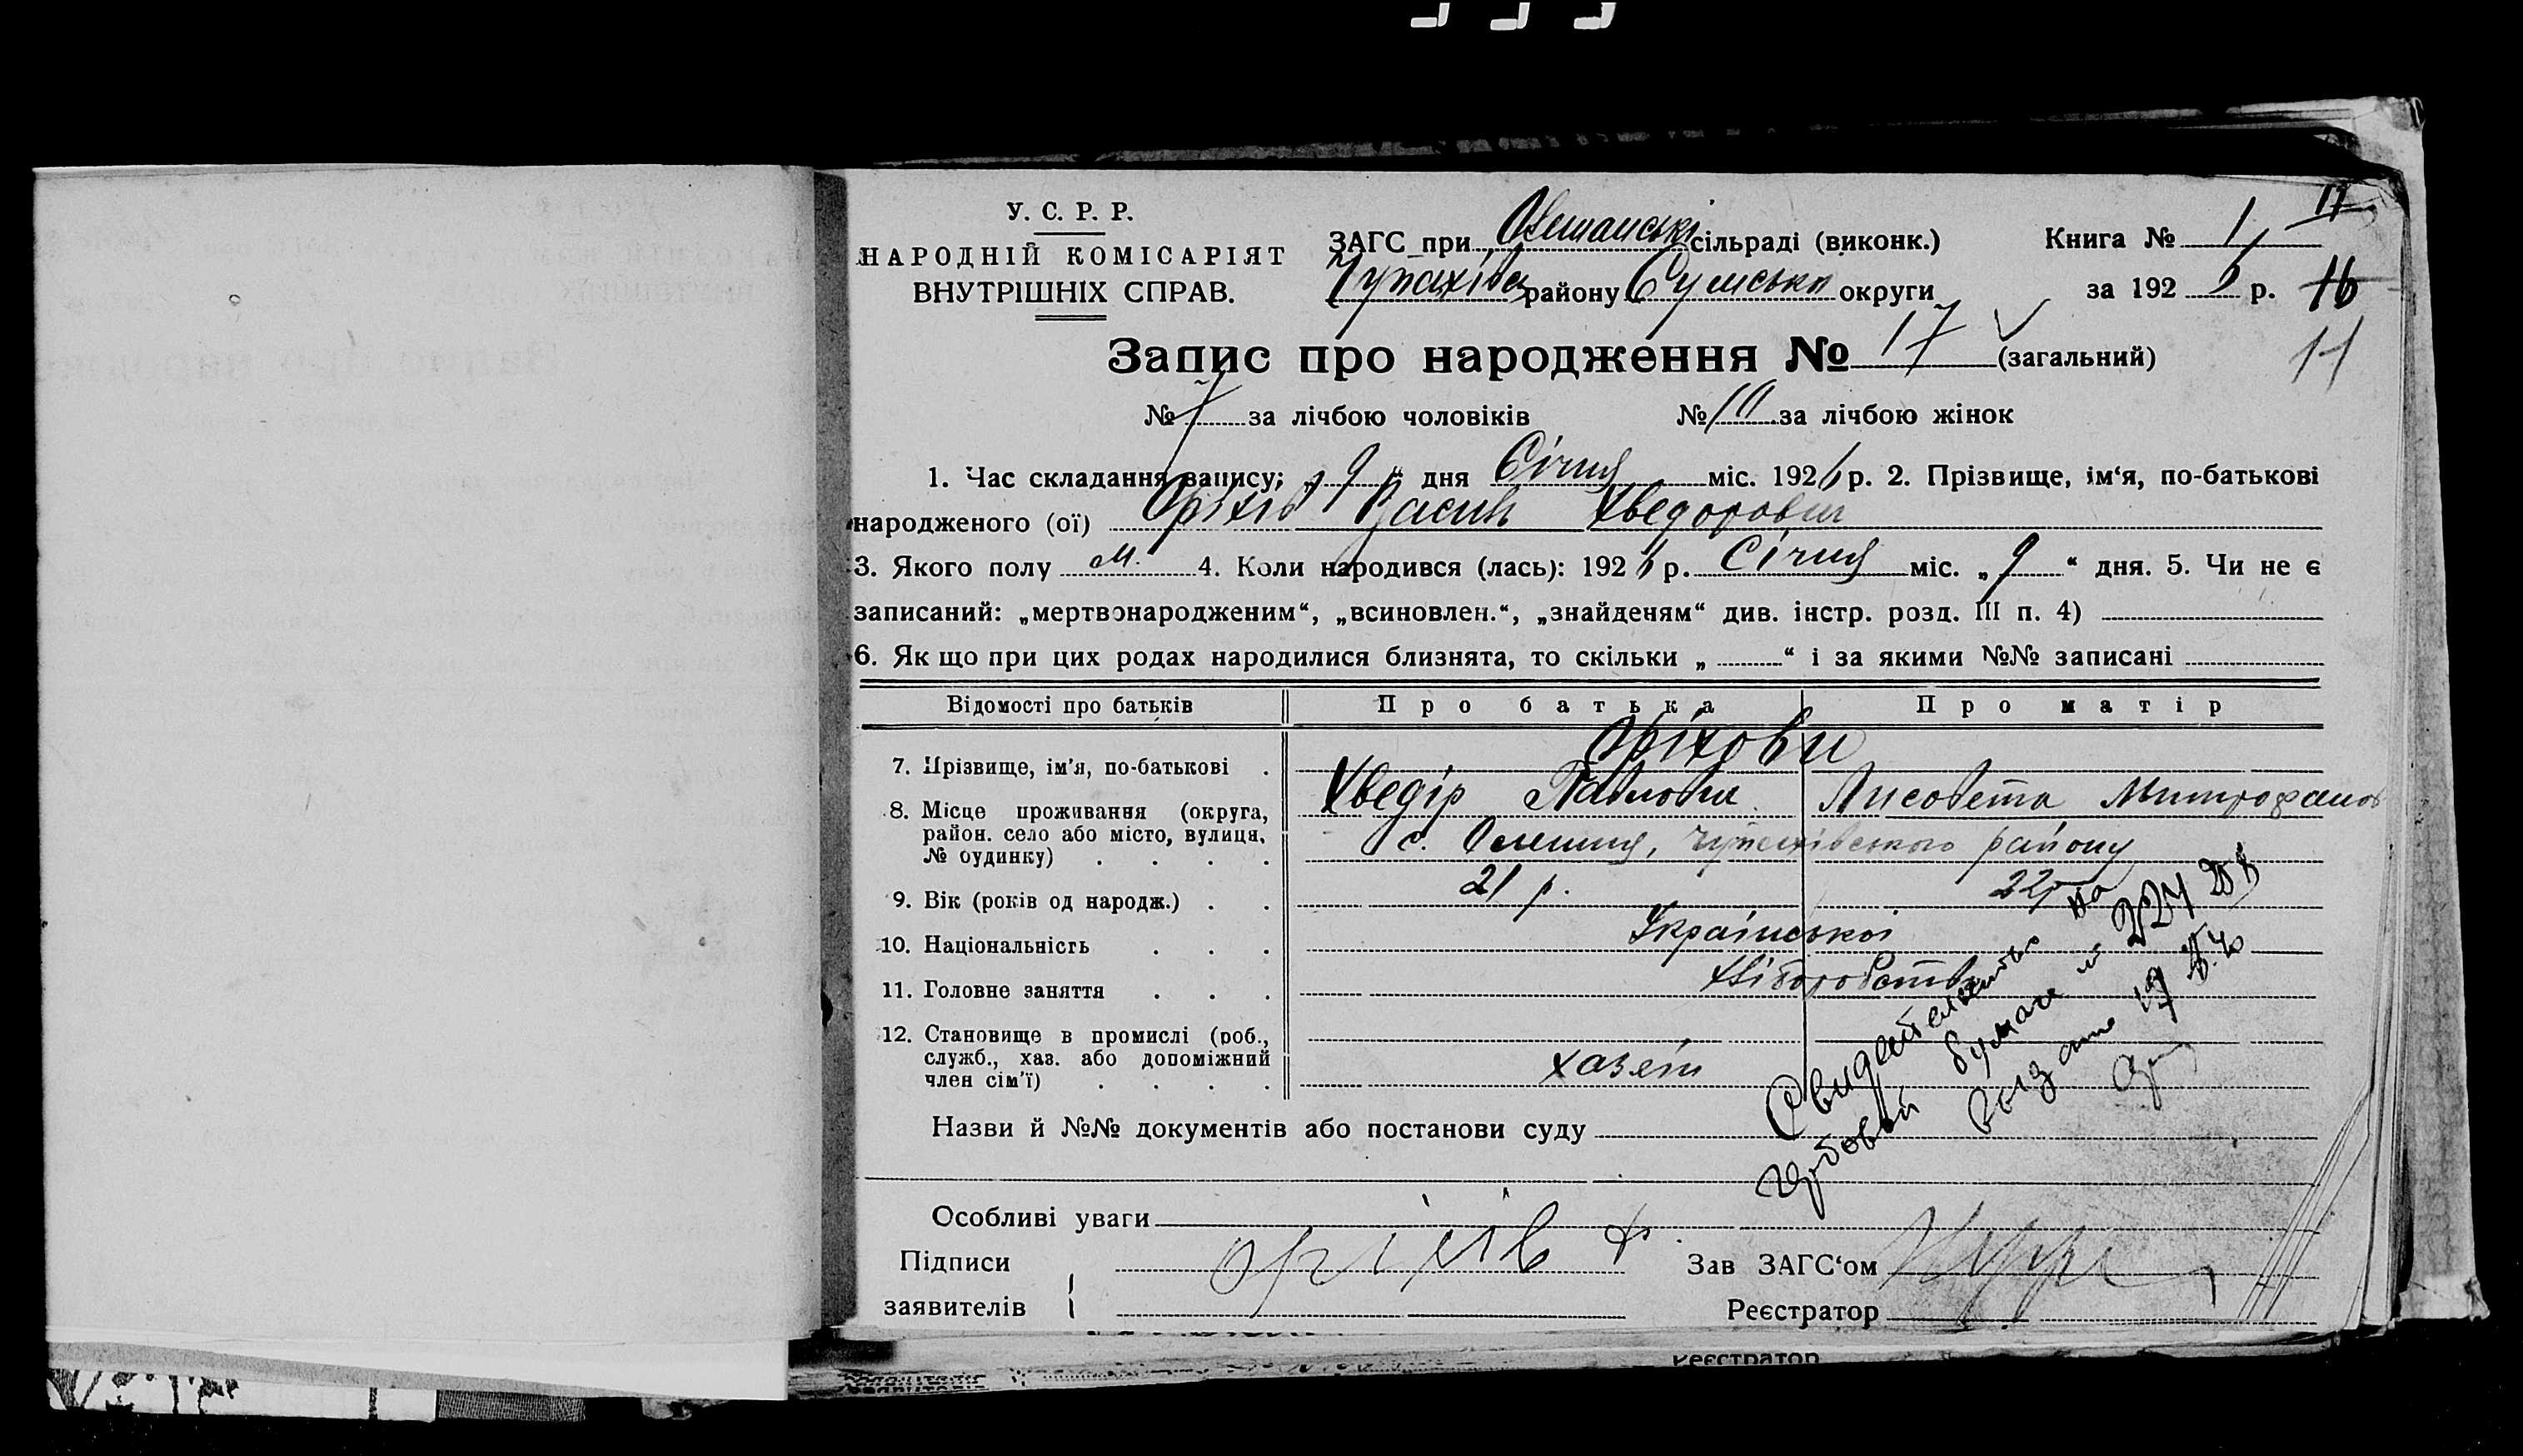 У. С. Р. Р.
НАРОДНІЙ КОМІСАРІЯТ
ВНУТРІШНІХ СПРАВ.
ЗАГС при Олешанські сільраді (виконк.)
Чупахівс району Сумсько округи
Книга № 1
за 192 6 р.
17
16
11
Запис про народження № 17 (загальний)
№ 7 за лічбою чоловіків № 10 за лічбою жінок
1. Час складання запису; „ 9 “ дня Січня міс. 192 6 р. 2. Прізвище, ім‘я, по-батькові
народженого (ої) Оріхів Василь Хведорович
3. Якого полу м. 4. Коли народився (лась): 192 6 р. Січня міс. „ 9 “ дня. 5. Чи не є
записаний: „мертвонародженим“, „всиновлен.“, „знайденям“ див. інстр. розд. III п. 4)
6. Як що при цих родах народилися близнята, то скільки „ “ і за якими №№ записані
Відомості про батьків Про батька Про матір
7. Прізвище, ім'я, по-батькові . Оріхови
Хведір Павлович Лисовета Митрофанов
8. Місце проживання (округа,
район. село або місто, вулиця,
№ будинку) . . . . с. Олешня, Чупахівського району
9. Вік (років од народж.) . . 21 р. 22 р
10. Національність . . . Української
11. Головне заняття . . . Хліборобство
12. Становище в промислі (роб.,
служб., хаз. або допоміжний
член сім'ї) . . . . хазяїн
Свидетельство на
гербовой бумаге № 224
выдано 19
Назви й №№ документів або постанови суду
Особливі уваги
Підписи
заявителів
Оріхів Х
Зав ЗАГС‘ом
Реєстратор
Реєстратор